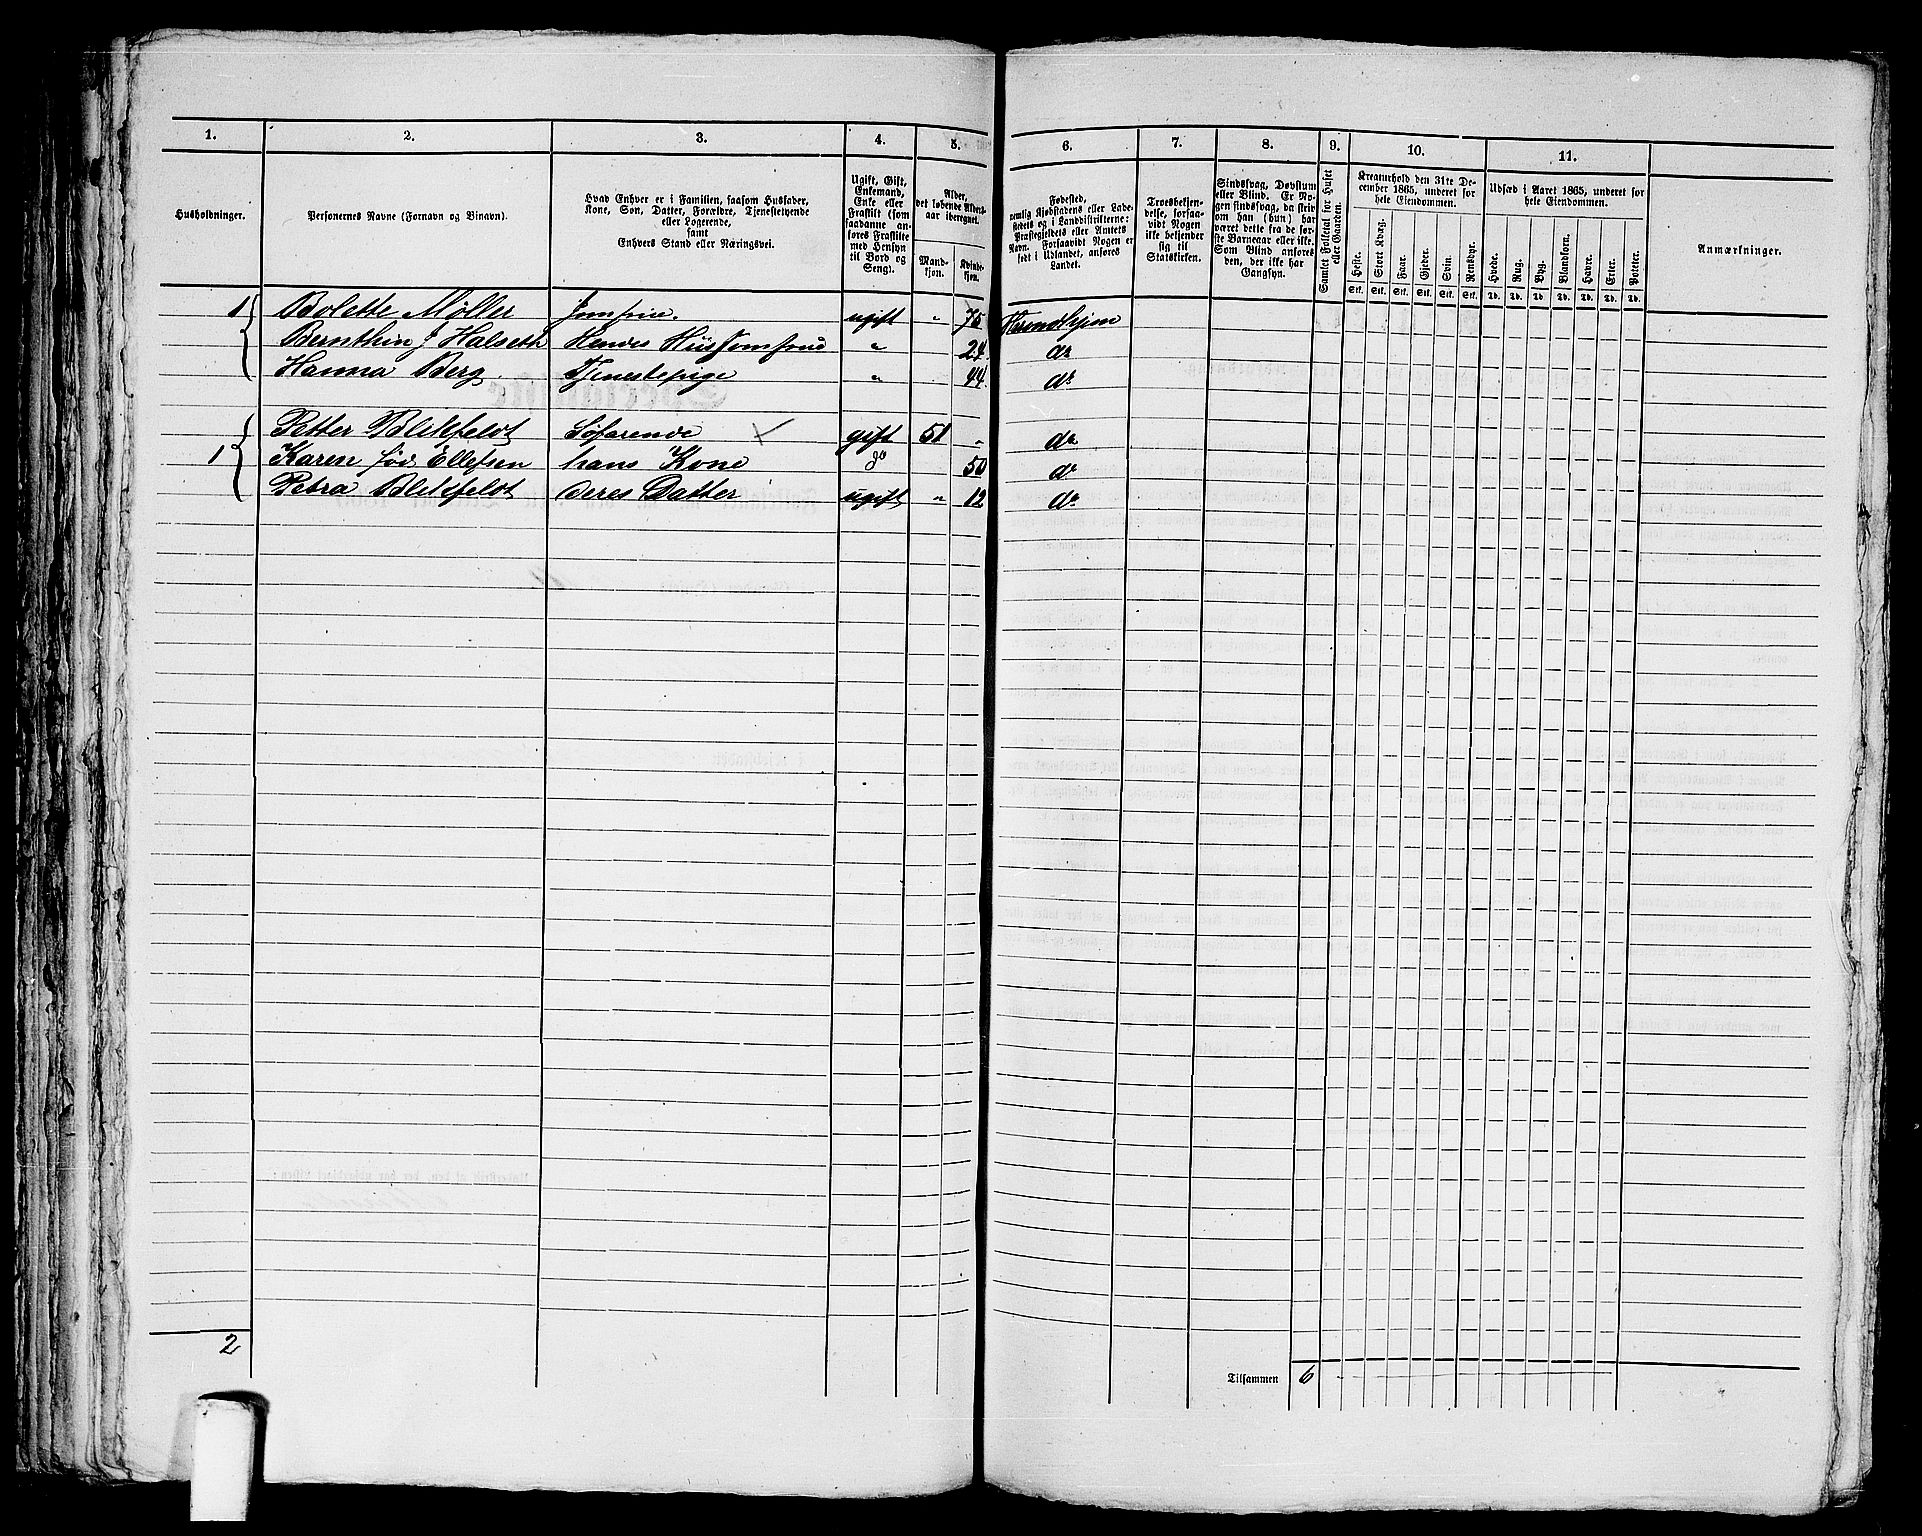 1. 2. 3. 4. 5. 6. 7. 8. 9. 10. 11.
Husholdninger.
Personernes Navne (Fornavn og Binavn).
Hvad Enhver er i Familien, saasom Husfader,
Kone, Søn, Datter, Forældre, Tjenestetyende
eller Logerende,
samt
Enhvers Stand eller Næringsvei.
Ugift, Gift,
Enkemand,
Enke eller
Fraskilt (som
saadanne an-
føres Fraskilte
med Hensyn
til Bord og
Seng).
Alder,
det løbende Alders-
aar iberegnet.
Mand-
kjøn.
Kvinde-
kjøn.
Fødested,
nemlig Kjøbstadens eller Lade-
stedets og i Landdistrikterne:
Præstegjeldets eller Amtets
Navn. Forsaavidt Nogen er
født i Udlandet, anføres
Landet.
Troesbekjen-
delse, forsaa-
vidt Nogen
ikke bekjender
sig til
Statskirken.
Sindssvag, Døvstum
eller Blind. Er No-
gen sindssvag, da skriv
om han (hun) har
været dette fra de før-
ste Barneaar eller ikke.
Som Blind anføres
den, der ikke har
Gangsyn.
Samlet Folketal for Huset
eller Gaarden.
Kreaturhold den 31te De-
cember 1865, underet for
hele Eiendommen.
Heste. Stort Kvæg. Faar. Gjeder. Svin. Rensdyr.
Stk. Stk. Stk. Stk. Stk. Stk.
Udsæd i Aaret 1865, underet for
hele Eiendommen.
Hvede. Rug. Byg. Blandkorn. Havre. Erter. Poteter.
Td. Td. Td. Td. Td. Td. Td.
Anmærkninger.
1 Bolette Møller Jomfrue. ugift " 75 Throndhjem
Bernthin J Halseth Hendes Huus Jomfrue " 24 do
Hanna Berg Tjenestepige " 44 do
1 Petter Blikfeldt Søfarende gift 51 " do
Karen fød Ellefsen hans Kone do 50 do
Petra Blikfeldt deres Datter ugift " 12 do
2
Tilsammen 6